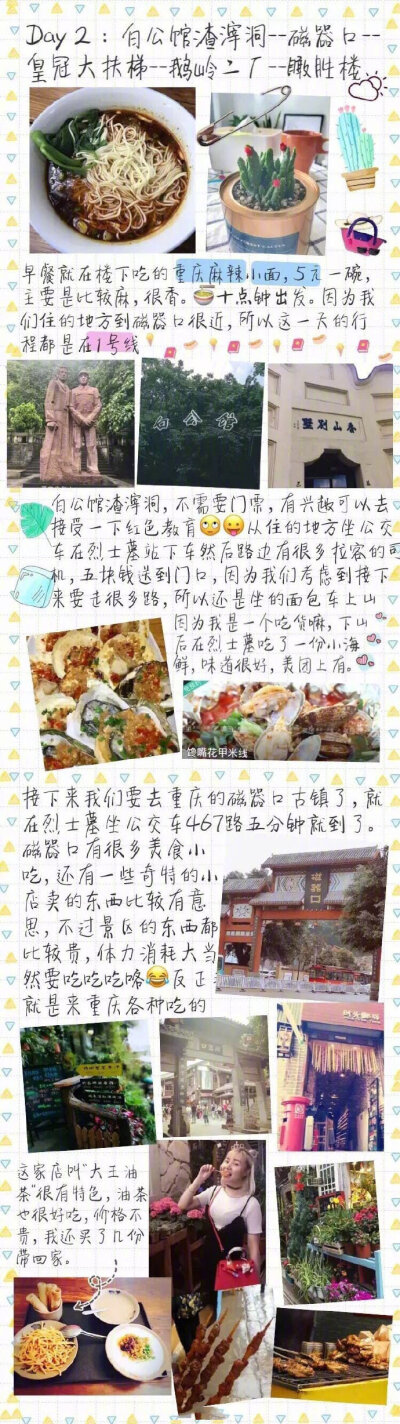 Day 2：白公馆渣滓洞--磁器口--
皇冠大扶梯--鹅岭二厂--瞰胜楼
早餐就在楼下吃的重庆麻辣小面，5元一碗，
主要是比较麻，很香。🍜十点钟出发。因为我
们住的地方到磁器口很近，所以这一天的行
程都是在1号线
白公馆
香山别墅
白公馆渣滓洞，不需要门票，有兴趣可以去
接受一下红色教育🙄😛从住的地方坐公交
车在烈士墓站下车然后路边有很多拉客的司
机，五块钱送到门口，因为我们考虑到接下
来要走很多路，所以还是坐的面包车上山
因为我是一个吃货嘛，下山
后在烈士墓吃了一份小海
鲜，味道很好，美团上有。
馋嘴花甲米线
接下来我们要去重庆的磁器口古镇了，就
在烈士墓坐公交车467路五分钟就到了。
磁器口有很多美食小
吃，还有一些奇特的小
店卖的东西比较有意
思，不过景区的东西都
比较贵，体力消耗大当
然要吃吃吃咯😂反正
就是来重庆各种吃的
磁器口
这家店叫“大王油
茶”很有特色，油茶
也很好吃，价格不
贵，我还买了几份
带回家。